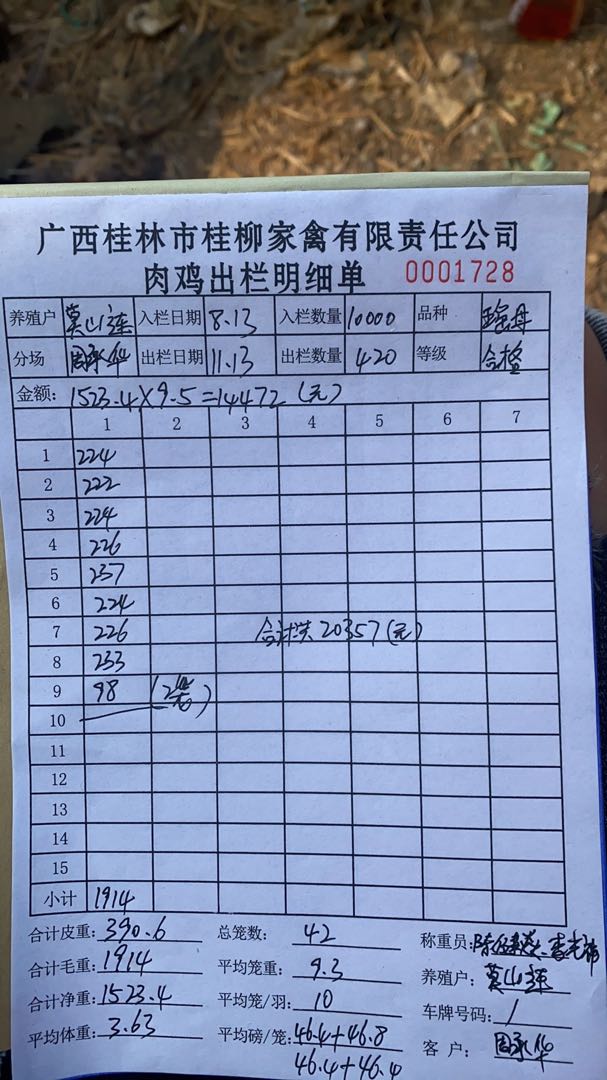 广西桂林市桂柳家禽有限责任公司
肉鸡出栏明细单 0001728
养殖户 莫山连 入栏日期 8.13 入栏数量 10000 品种
分场 周承华 出栏日期 11.13 出栏数量 420 等级 合格
金额: 1523.4×9.5=14472(元)
1 2 3 4 5 6 7
1 224
2 222
3 224
4 226
5 237
6 224
7 226 合计共20357(元)
8 233
9 98 (2笼)
10
11
12
13
14
15
小计 1914
合计皮重: 390.6 总笼数: 42 称重员:
合计毛重: 1914 平均笼重: 9.3 养殖户: 莫山连
合计净重: 1523.4 平均笼/羽: 10 车牌号码: /
平均体重: 3.63 平均磅/笼: 46.4+46.8 客户: 周承华
46.4+46.4